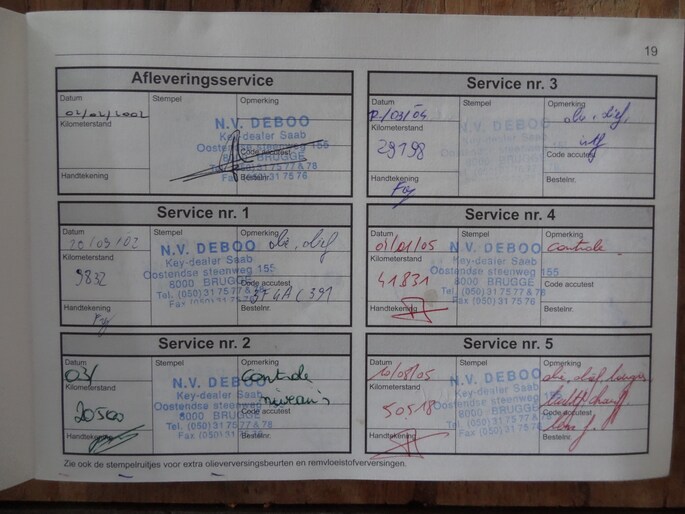 19
Afleveringsservice
Datum Stempel Opmerking
02/02/2002
Kilometerstand
N.V. DEBOO
Key-dealer Saab
Oostendse steenweg 155
8000 BRUGGE
Tel. (050) 31 75 77 & 78
Fax (050) 31 75 76
Code accutest
Handtekening
Bestelnr.
Service nr. 1
20/09/02
N.V. DEBOO
Key-dealer Saab
Oostendse steenweg 155
8000 BRUGGE
Tel. (050) 31 75 77 & 78
Fax (050) 31 75 76
Kilometerstand
9832
Code accutest
Handtekening
Bestelnr.
Service nr. 2
Datum Stempel Opmerking
03/
controle
niveau's
Kilometerstand
20500
N.V. DEBOO
Key-dealer Saab
Oostendse steenweg 155
8000 BRUGGE
Tel. (050) 31 75 77 & 78
Fax (050) 31 75 76
Code accutest
Handtekening
Bestelnr.
Service nr. 3
Datum Stempel Opmerking
/03/04
Kilometerstand
29198
Code accutest
Handtekening
Bestelnr.
Service nr. 4
01/05
controle
Kilometerstand
41831
N.V. DEBOO
Key-dealer Saab
Oostendse steenweg 155
8000 BRUGGE
Tel. (050) 31 75 77 & 78
Fax (050) 31 75 76
Code accutest
Handtekening
Bestelnr.
Service nr. 5
Datum Stempel Opmerking
10/08/05
Kilometerstand
50518
N.V. DEBOO
Key-dealer Saab
Oostendse steenweg 155
8000 BRUGGE
Tel. (050) 31 75 77 & 78
Fax (050) 31 75 76
Code accutest
Handtekening
Bestelnr.
Zie ook de stempelruitjes voor extra olieverversingsbeurten en remvloeistofverversingen.